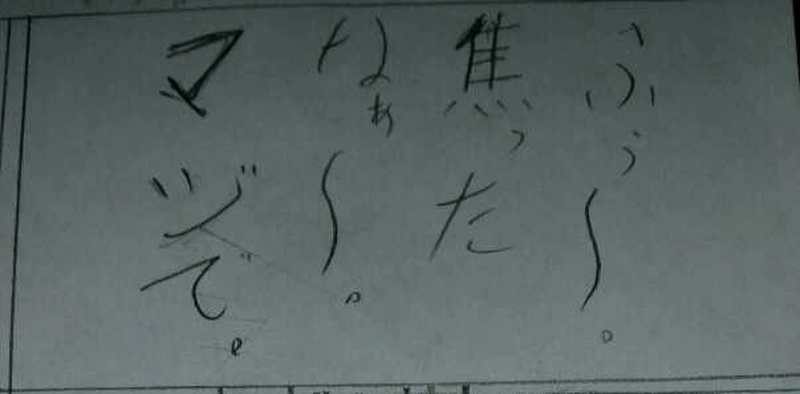 ふぅ〜。
焦った
なぁ〜。
マヅで。